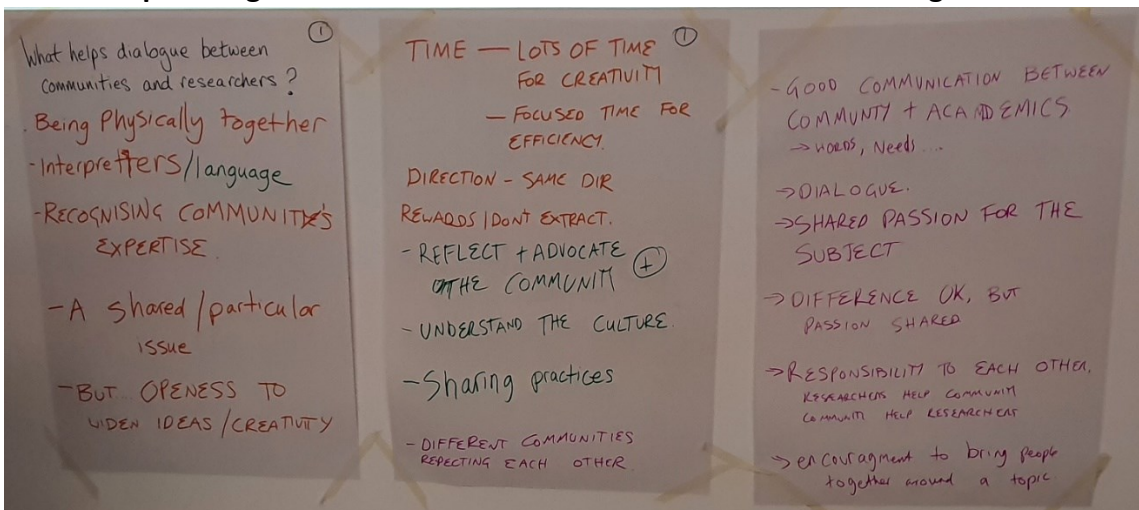 What helps dialogue between
communities and researchers?
①
. Being Physically together
- Interpretters/language
- RECOGNISING COMMUNITY'S
EXPERTISE.
- A shared/particular
issue
- BUT OPENESS TO
WIDEN IDEAS/CREATIVITY
TIME — LOTS OF TIME
①
FOR CREATIVITY
— FOCUSED TIME FOR
EFFICIENCY.
DIRECTION - SAME DIR
REWARDS/DONT EXTRACT.
- REFLECT + ADVOCATE
THE COMMUNITY (+)
- UNDERSTAND THE CULTURE.
- Sharing practices
- DIFFERENT COMMUNITIES
REPECTING EACH OTHER.
- GOOD COMMUNICATION BETWEEN
COMMUNTY + ACADEMICS
→ WORDS, Needs ....
→ DIALOGUE.
→ SHARED PASSION FOR THE
SUBJECT
→ DIFFERENCE OK, BUT
PASSION SHARED
→ RESPONSIBILITY TO EACH OTHER.
RESEARCHERS HELP COMMUNITY
COMMUNITY HELP RESEARCHERS
→ encouragment to bring people
together around a topic